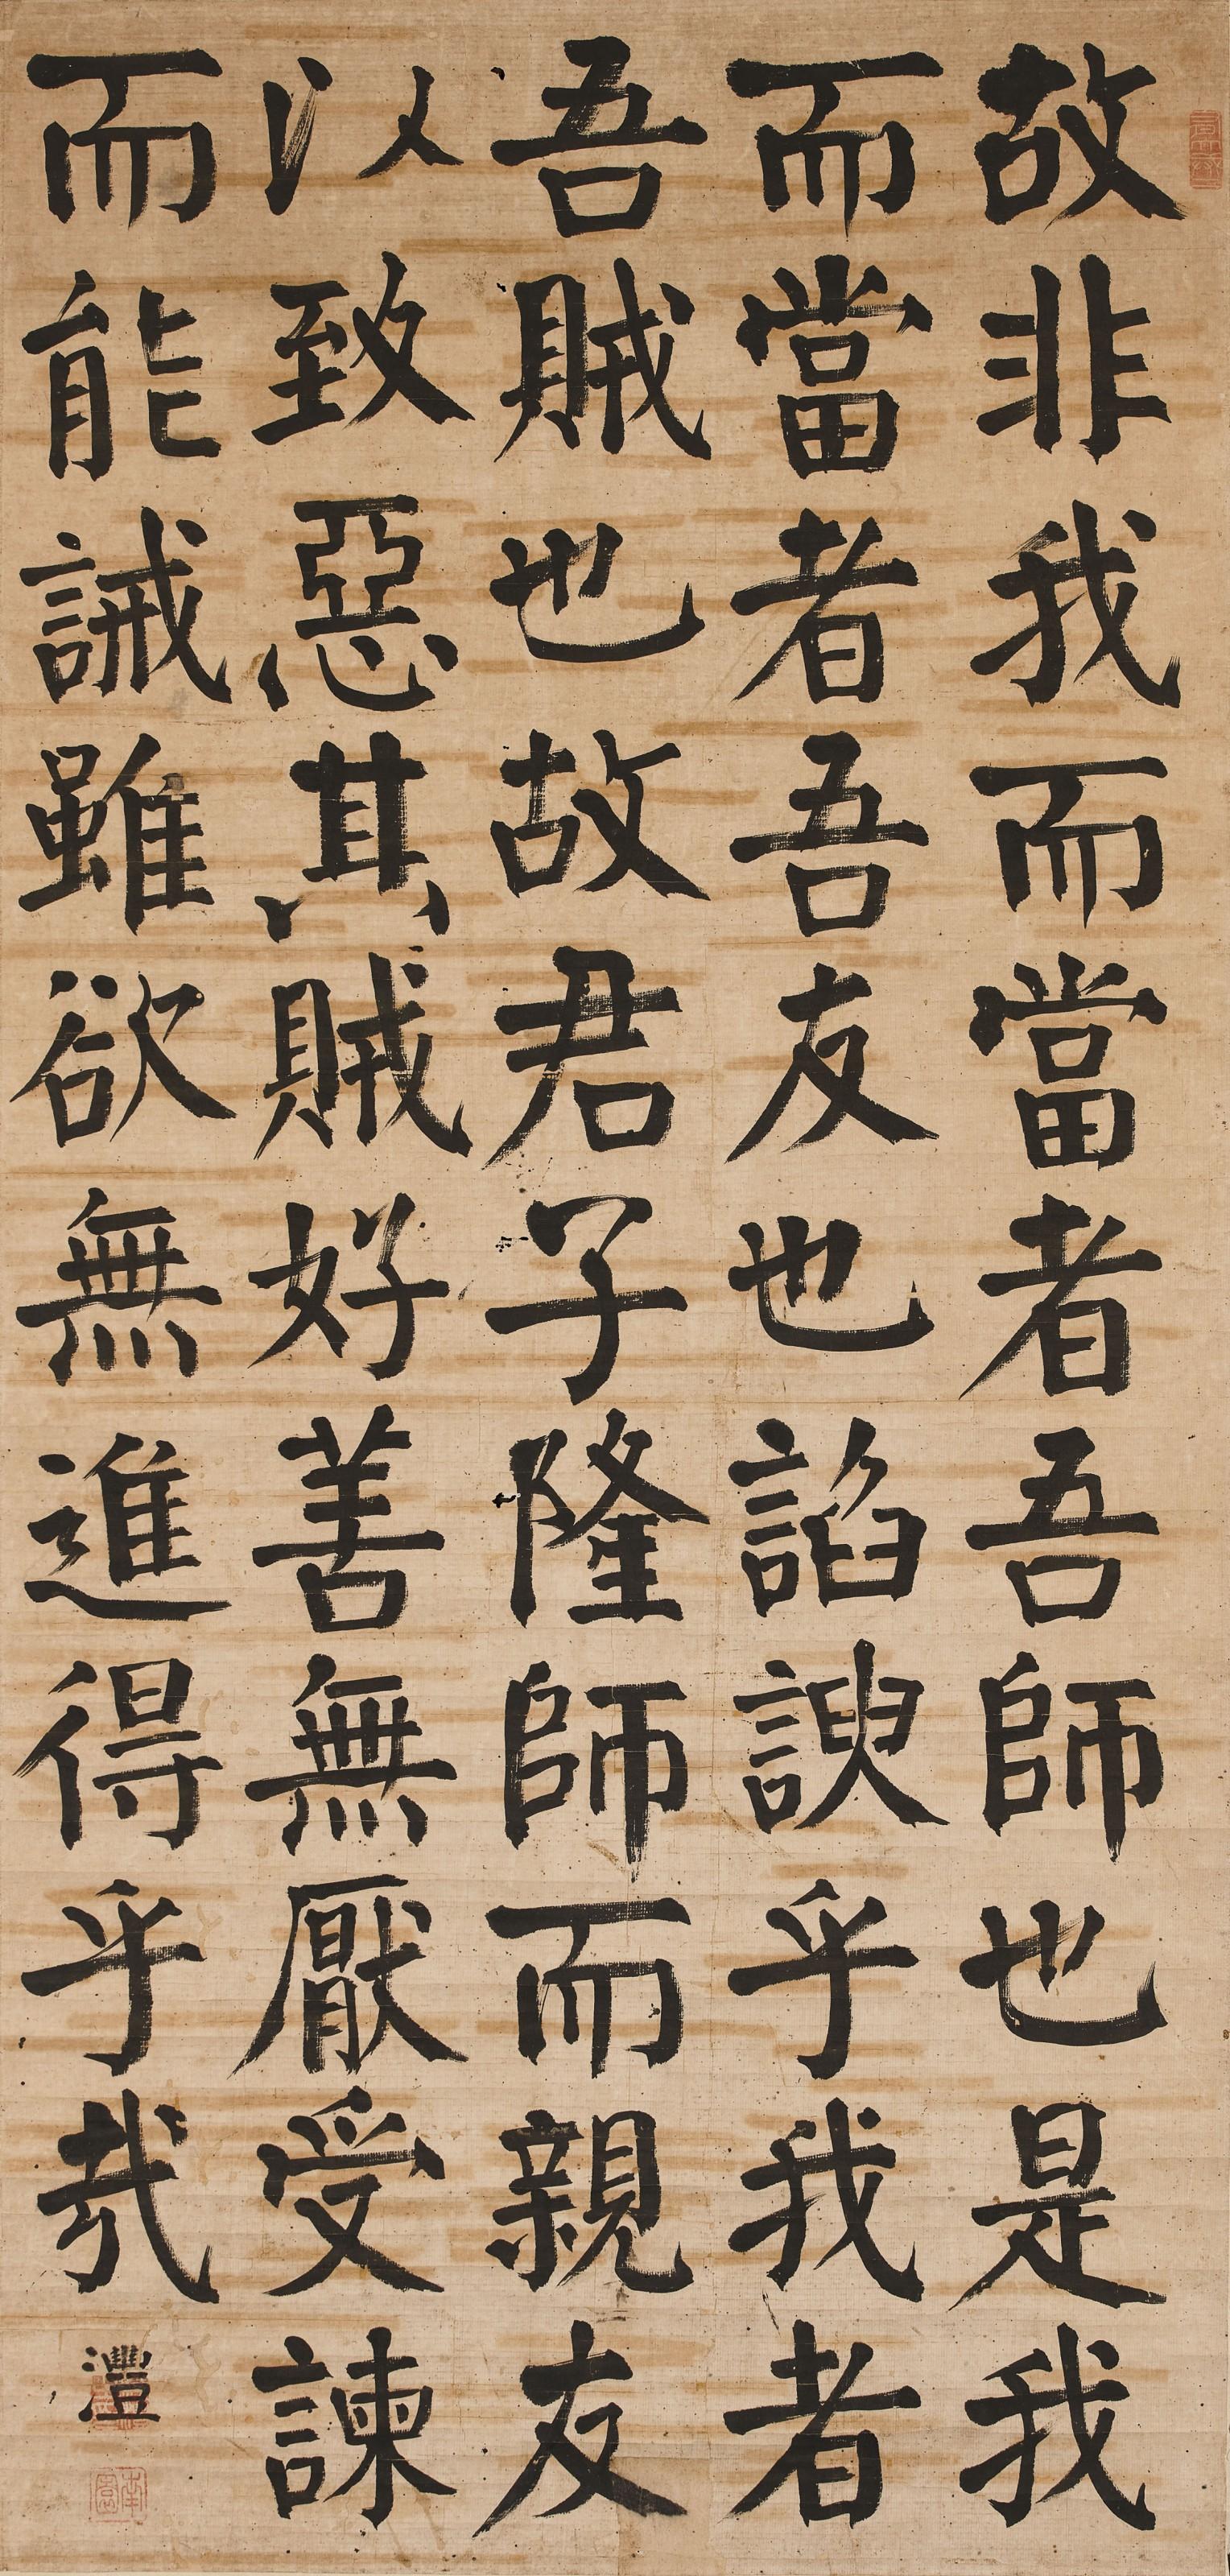 故非我而當者吾師也是我
而當者吾友也諂諛乎我者
吾賊也故君子隆師而親友
以致惡其賊好善無厭受諫
而能誡雖欲無進得乎哉
灃